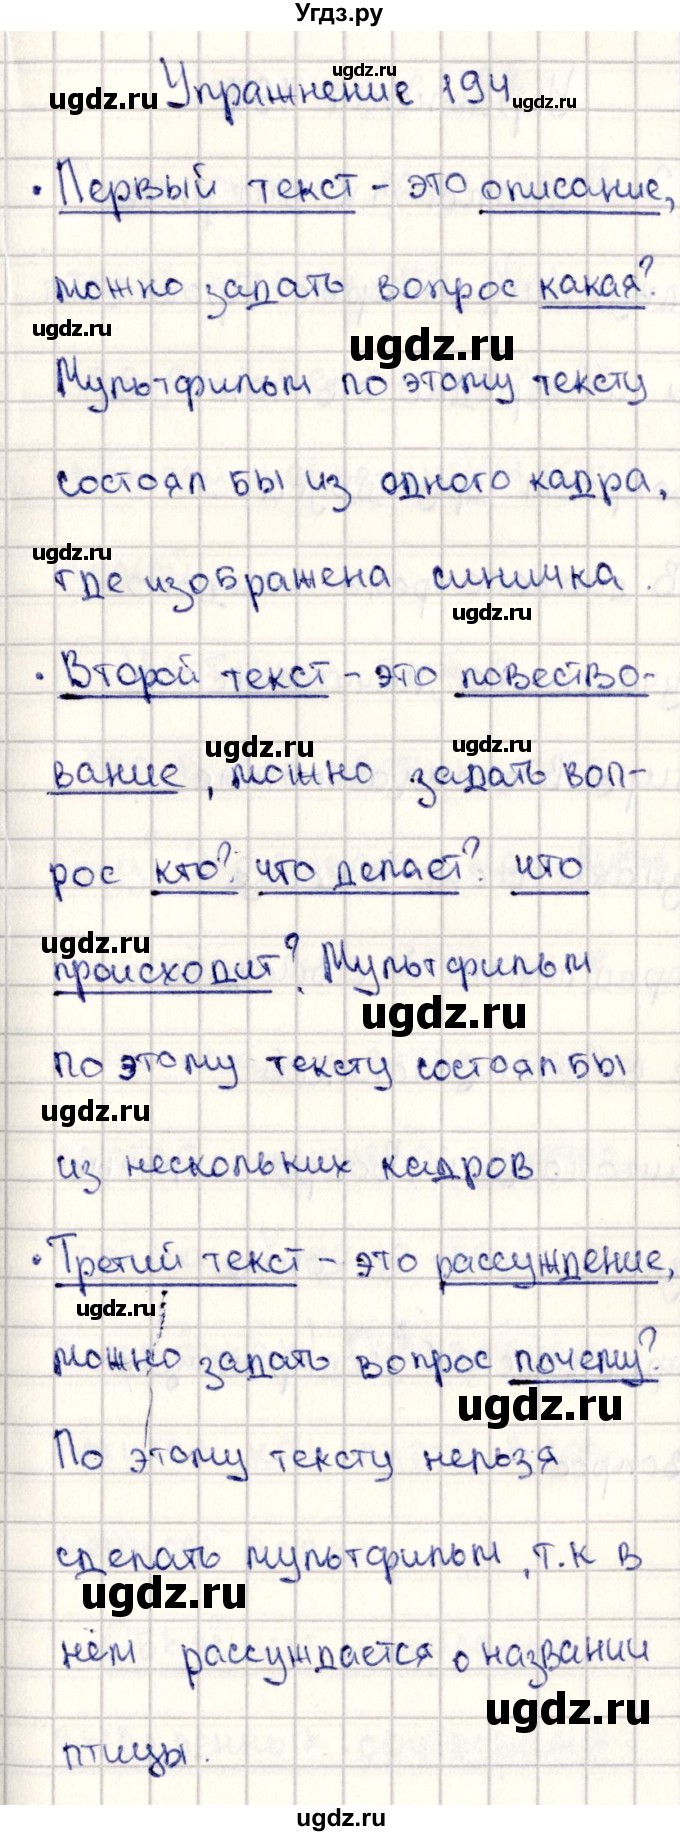 Угдз.ру
ugdz.ru
ugdz.ru Упражнение 194
• Первый текст – это описание,
можно задать вопрос какая?
ugdz.ru
ugdz.ru
Мультфильм по этому тексту
состоял бы из одного кадра,
ugdz.ru
где изображена синичка.
ugdz.ru
• Второй текст – это повество-
ugdz.ru
ugdz.ru
вание, можно задать воп-
рос кто? что делает? что
ugdz.ru
происходит? Мультфильм
ugdz.ru
по этому тексту состоял бы
ugdz.ru
из нескольких кадров.
• Третий текст – это рассуждение,
ugdz.ru
можно задать вопрос почему?
ugdz.ru
По этому тексту нельзя
сделать мультфильм, т.к в
ugdz.ru
нём рассуждается о названии
ugdz.ru
птицы.
ugdz.ru